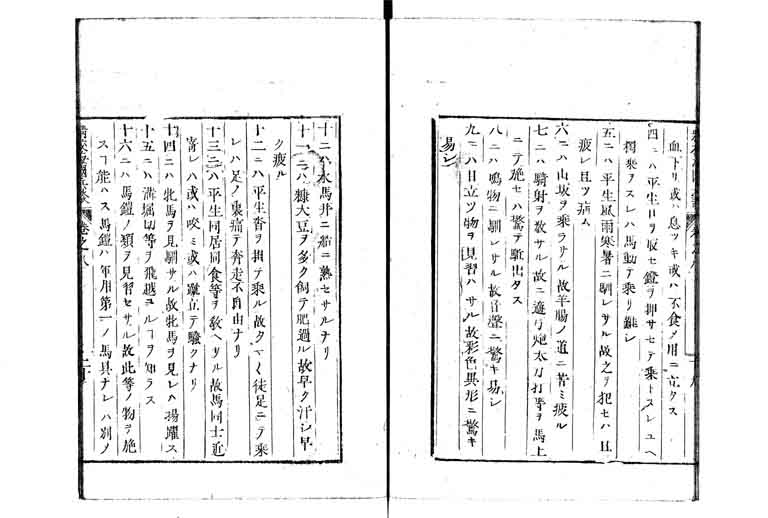 血下リ或ハ息ツキ或ハ不食〆用ニ立タス
四ニハ平生口ヲ取セ鐙ヲ押サセテ乗トスレユヘ
獨乗ヲスレハ馬動テ乗リ難シ
五ニハ平生風雨寒暑ニ馴レサル故之ヲ犯セハ且
疲レ且ツ病ム
六ニハ山坂ヲ乗ラサル故羊腸ノ道ニ苦ミ疲ル
七ニハ騎射ヲ教サル故ニ適弓炮太刀打等ヲ馬上
ニテ施セハ驚テ駈出タス
八ニハ鳴物ニ馴レサル故音聲ニ驚キ易シ
九ニハ目立ツ物ヲ見習ハサル故彩色異形ニ驚キ
易シ
十ニハ水馬并ニ船ニ熟セサルナリ
十一ニハ糠大豆ヲ多ク飼テ肥過ル故早ク汗シ早
ク疲ル
十二ニハ平生沓ヲ掛テ乗ル故タマタマ徒足ニテ乗
レハ足ノ裏痛テ奔走不自由ナリ
十三ニハ平生同居同食等ヲ教ヘサル故馬同士近
寄レハ或ハ咬ミ或ハ蹴立テ騒クナリ
十四ニハ牝馬ヲ見馴サル故牝馬ヲ見レハ揚躍ス
十五ニハ溝堀切等ヲ飛越ユルヿヲ知ラス
十六ニハ馬鎧ノ類ヲ見習セサル故此等ノ物ヲ施
スヿ能ハス馬鎧ハ軍用第一ノ馬具ナレハ別ノ
卷之八